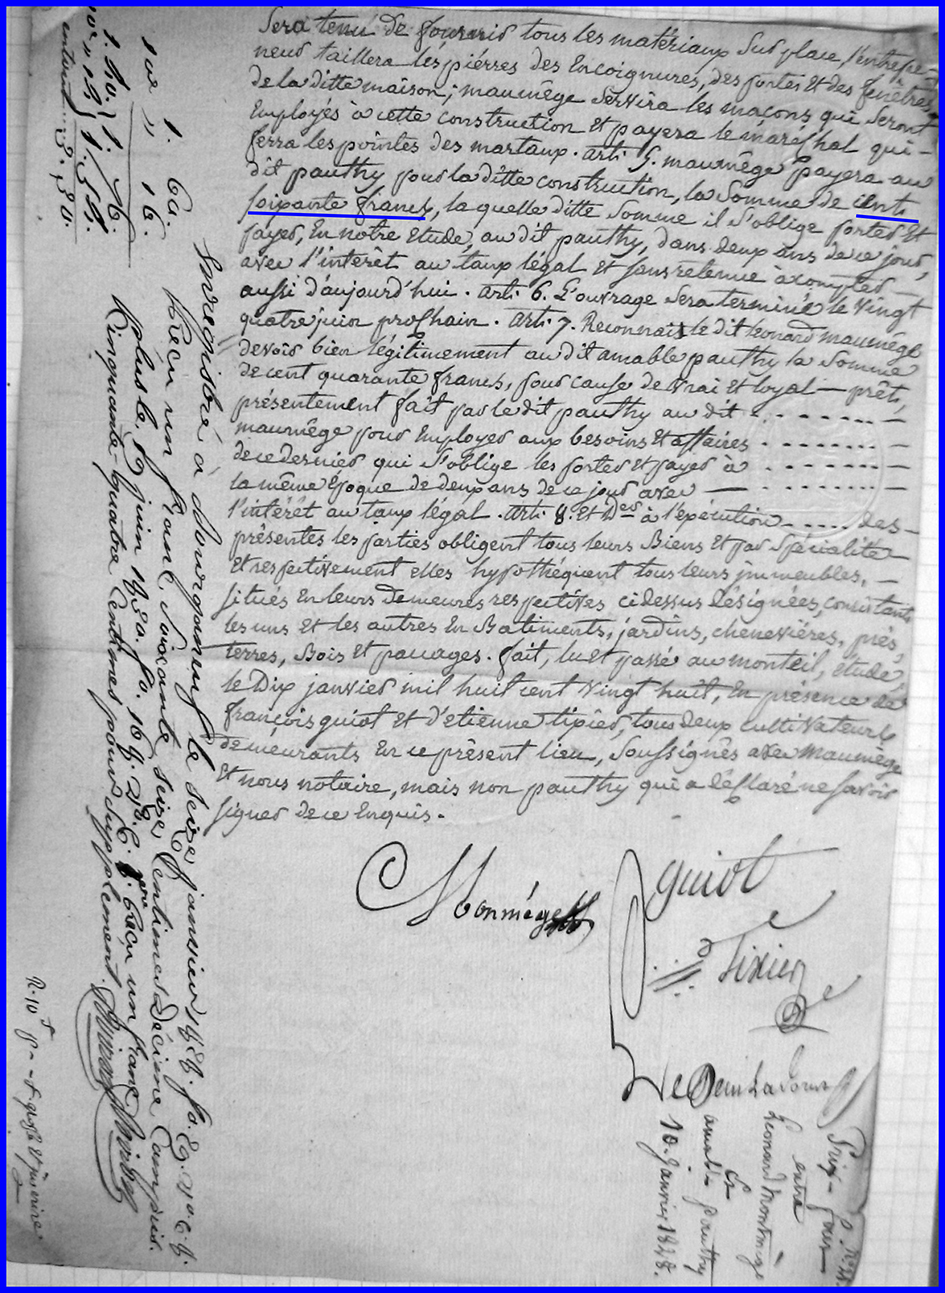 Sera tenu de fournir tous les matériaux Sur place, l'entrepre-
neur taillera les pièrres des Encoignures, des portes et des fenêtres
de la ditte maison; maumège Servira les maçons qui Seront
Employés à cette construction et payera le maréchal qui-
ferra les pointes des martaux. art. 5. maumège payera au
dit pauthy pour la ditte construction, la Somme de Cent
soixante francs, la quelle ditte Somme il S'oblige porter et
payer, En notre étude, au dit pauthy, dans deux ans de ce jour,
avec l'intérêt au taux légal et sans retenue à compter
aussi d'aujourd'hui. art. 6. L'ouvrage Sera terminé le vingt
quatre juin prochain. art. 7. Reconnait le dit leonard maumège
devoir bien légitimement au dit amable pauthy la Somme
de cent quarante francs, pour cause de vrai et loyal — prêt,
présentement fait par le dit pauthy au dit
maumège pour Employer aux besoins et affaires
de ce dernier qui S'oblige les porter et payer à
la même Epoque de deux ans de ce jour avec —
l'intérêt au taux légal. art. 8. et Der à l'execution des-
présentes les parties obligent tous leurs Biens et par Spécialité
Et respectivement elles hypothéquent tous leurs immeubles, —
situés En leurs demeures respectives cidessus désignées, consistants
les uns et les autres En Batiments, jardins, chenevières, prés,
terres, Bois et pacages. fait, lu et passé au monteil, étude,
le Dix janvier mil huit cent vingt huit, En présence de
françois guiot et d'etienne tixier, tous deux cultivateurs
demeurants En ce présent lieu, Soussignés avec Maumège
et nous notaire, mais non pauthy qui a déclaré ne savoir
signer de ce Enquis.
Monmège
guiot
Tixier
Prix-fait
entre
Leonard Monmège
Et
amable pauthy
10. Janvier 1828.
Enregistré à Bourganeuf le seize janvier 1828. fo. 69. vo. c. 8.
Reçu un franc soixante seize centimes Décime compris.
plus le 10 juin 1820. fo. 16 Reçu un franc
Cinquante-quatre Centimes pour Supplément.